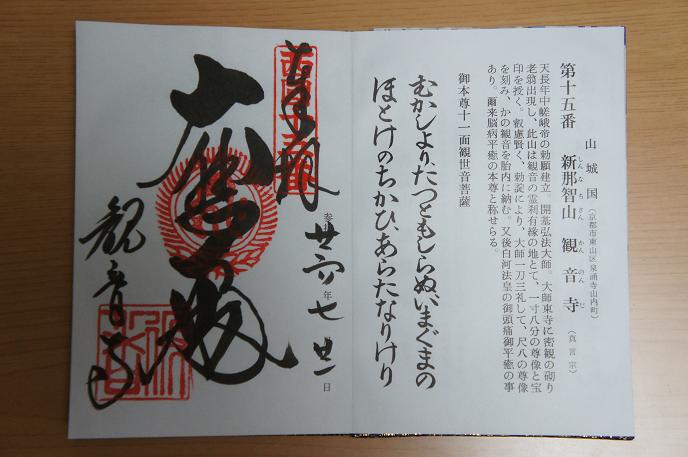 山城国(京都市東山区泉涌寺山内町)
第十五番 新那智山 観音寺(真言宗)
しんなちさん かんのんじ
天長年中嵯峨帝の勅願建立。開基弘法大師。大師東寺に密観の砌り
老翁出現し、此山は観音の霊刹有縁の地とて、一寸八分の尊像と宝
印を授く。叡慮賢く、勅諚により、大師一刀三礼して、尺八の尊像
を刻み、かの観音を胎内に納む。又後白河法皇の御頭痛御平癒の事
あり。爾来脳病平癒の本尊と称せらる。
御本尊十一面観世音菩薩
むかしより、たつともしらぬ、いまぐまの
ほとけのちかひ、あらたなりけり
奉拝
廿六年七月廿一日
大悲殿
観音寺